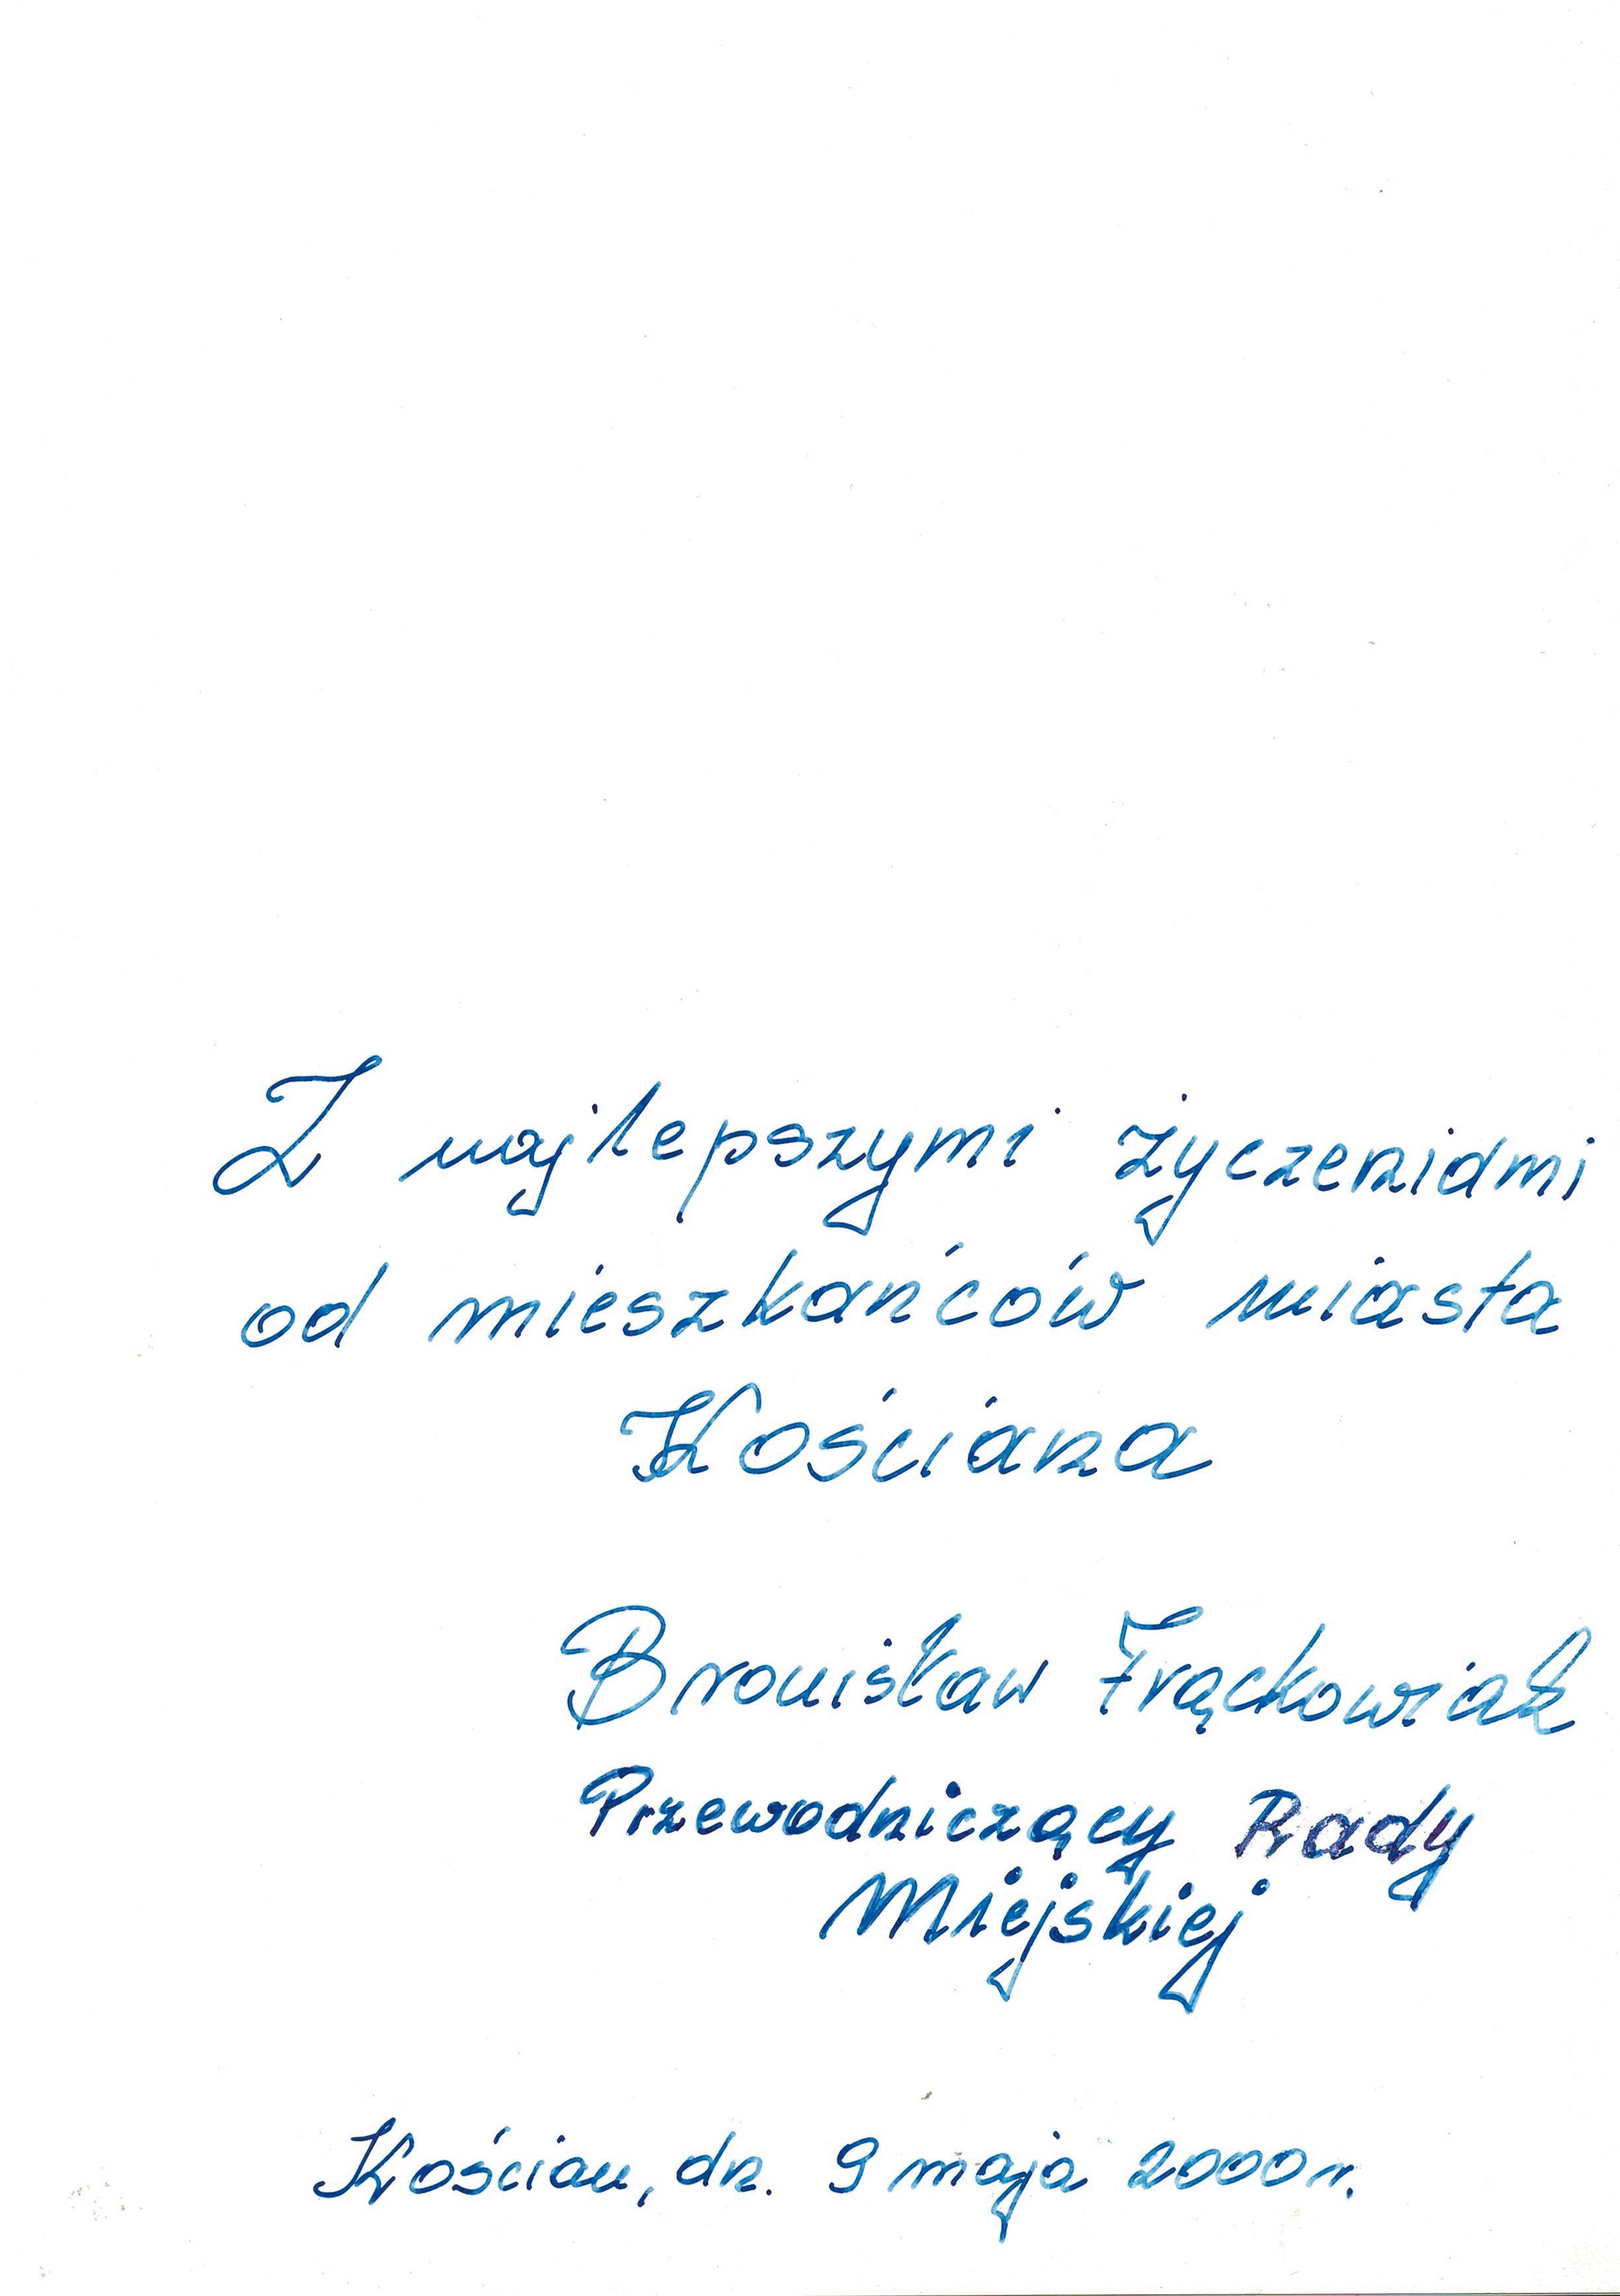 Z najlepszymi życzeniami
od mieszkańców miasta
Kościana
Bronisław Frąckowiak
Przewodniczący Rady
Miejskiej
Kościan, dn. 9 maja 2000 r.